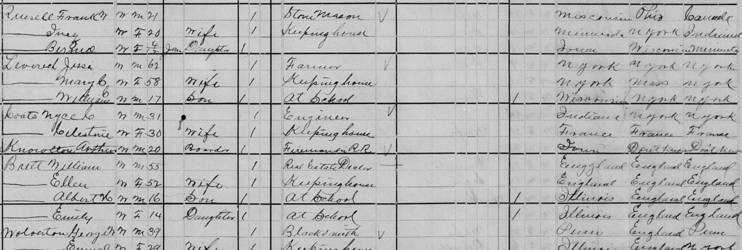 Russell Frank W W M 21 1 Stone Mason Wisconsin Ohio Canada
— Inez W F 20 Wife 1 Keeping house Minnesota N York Indiana
— W F Jan Daughter 1 Iowa Wisconsin Minnesota
Leverich Jesse W M 62 1 Farmer N York N York N York
— Mary C W F 58 Wife 1 Keeping house N York Mass N York
— William W M 17 Son 1 At School 1 Wisconsin N York N York
Coats Nyce C W M 31 1 Engineer Indiana N York N York
— Celestine W F 30 Wife 1 Keeping house France France France
Arthur W M 20 Boarder 1 Fireman on R.R. Iowa Don't know Don't know
Brett William W M 55 1 Real Estate Dealer England England England
— Ellen W F 52 Wife 1 Keeping house England England England
— Albert W M 16 Son 1 At School 1 Illinois England England
— Emily W F 14 Daughter 1 At School 1 Illinois England England
Wolverton George W M 39 1 Blacksmith Penn England Penn
W F 29 Wife 1 Keeping house Illinois England N York